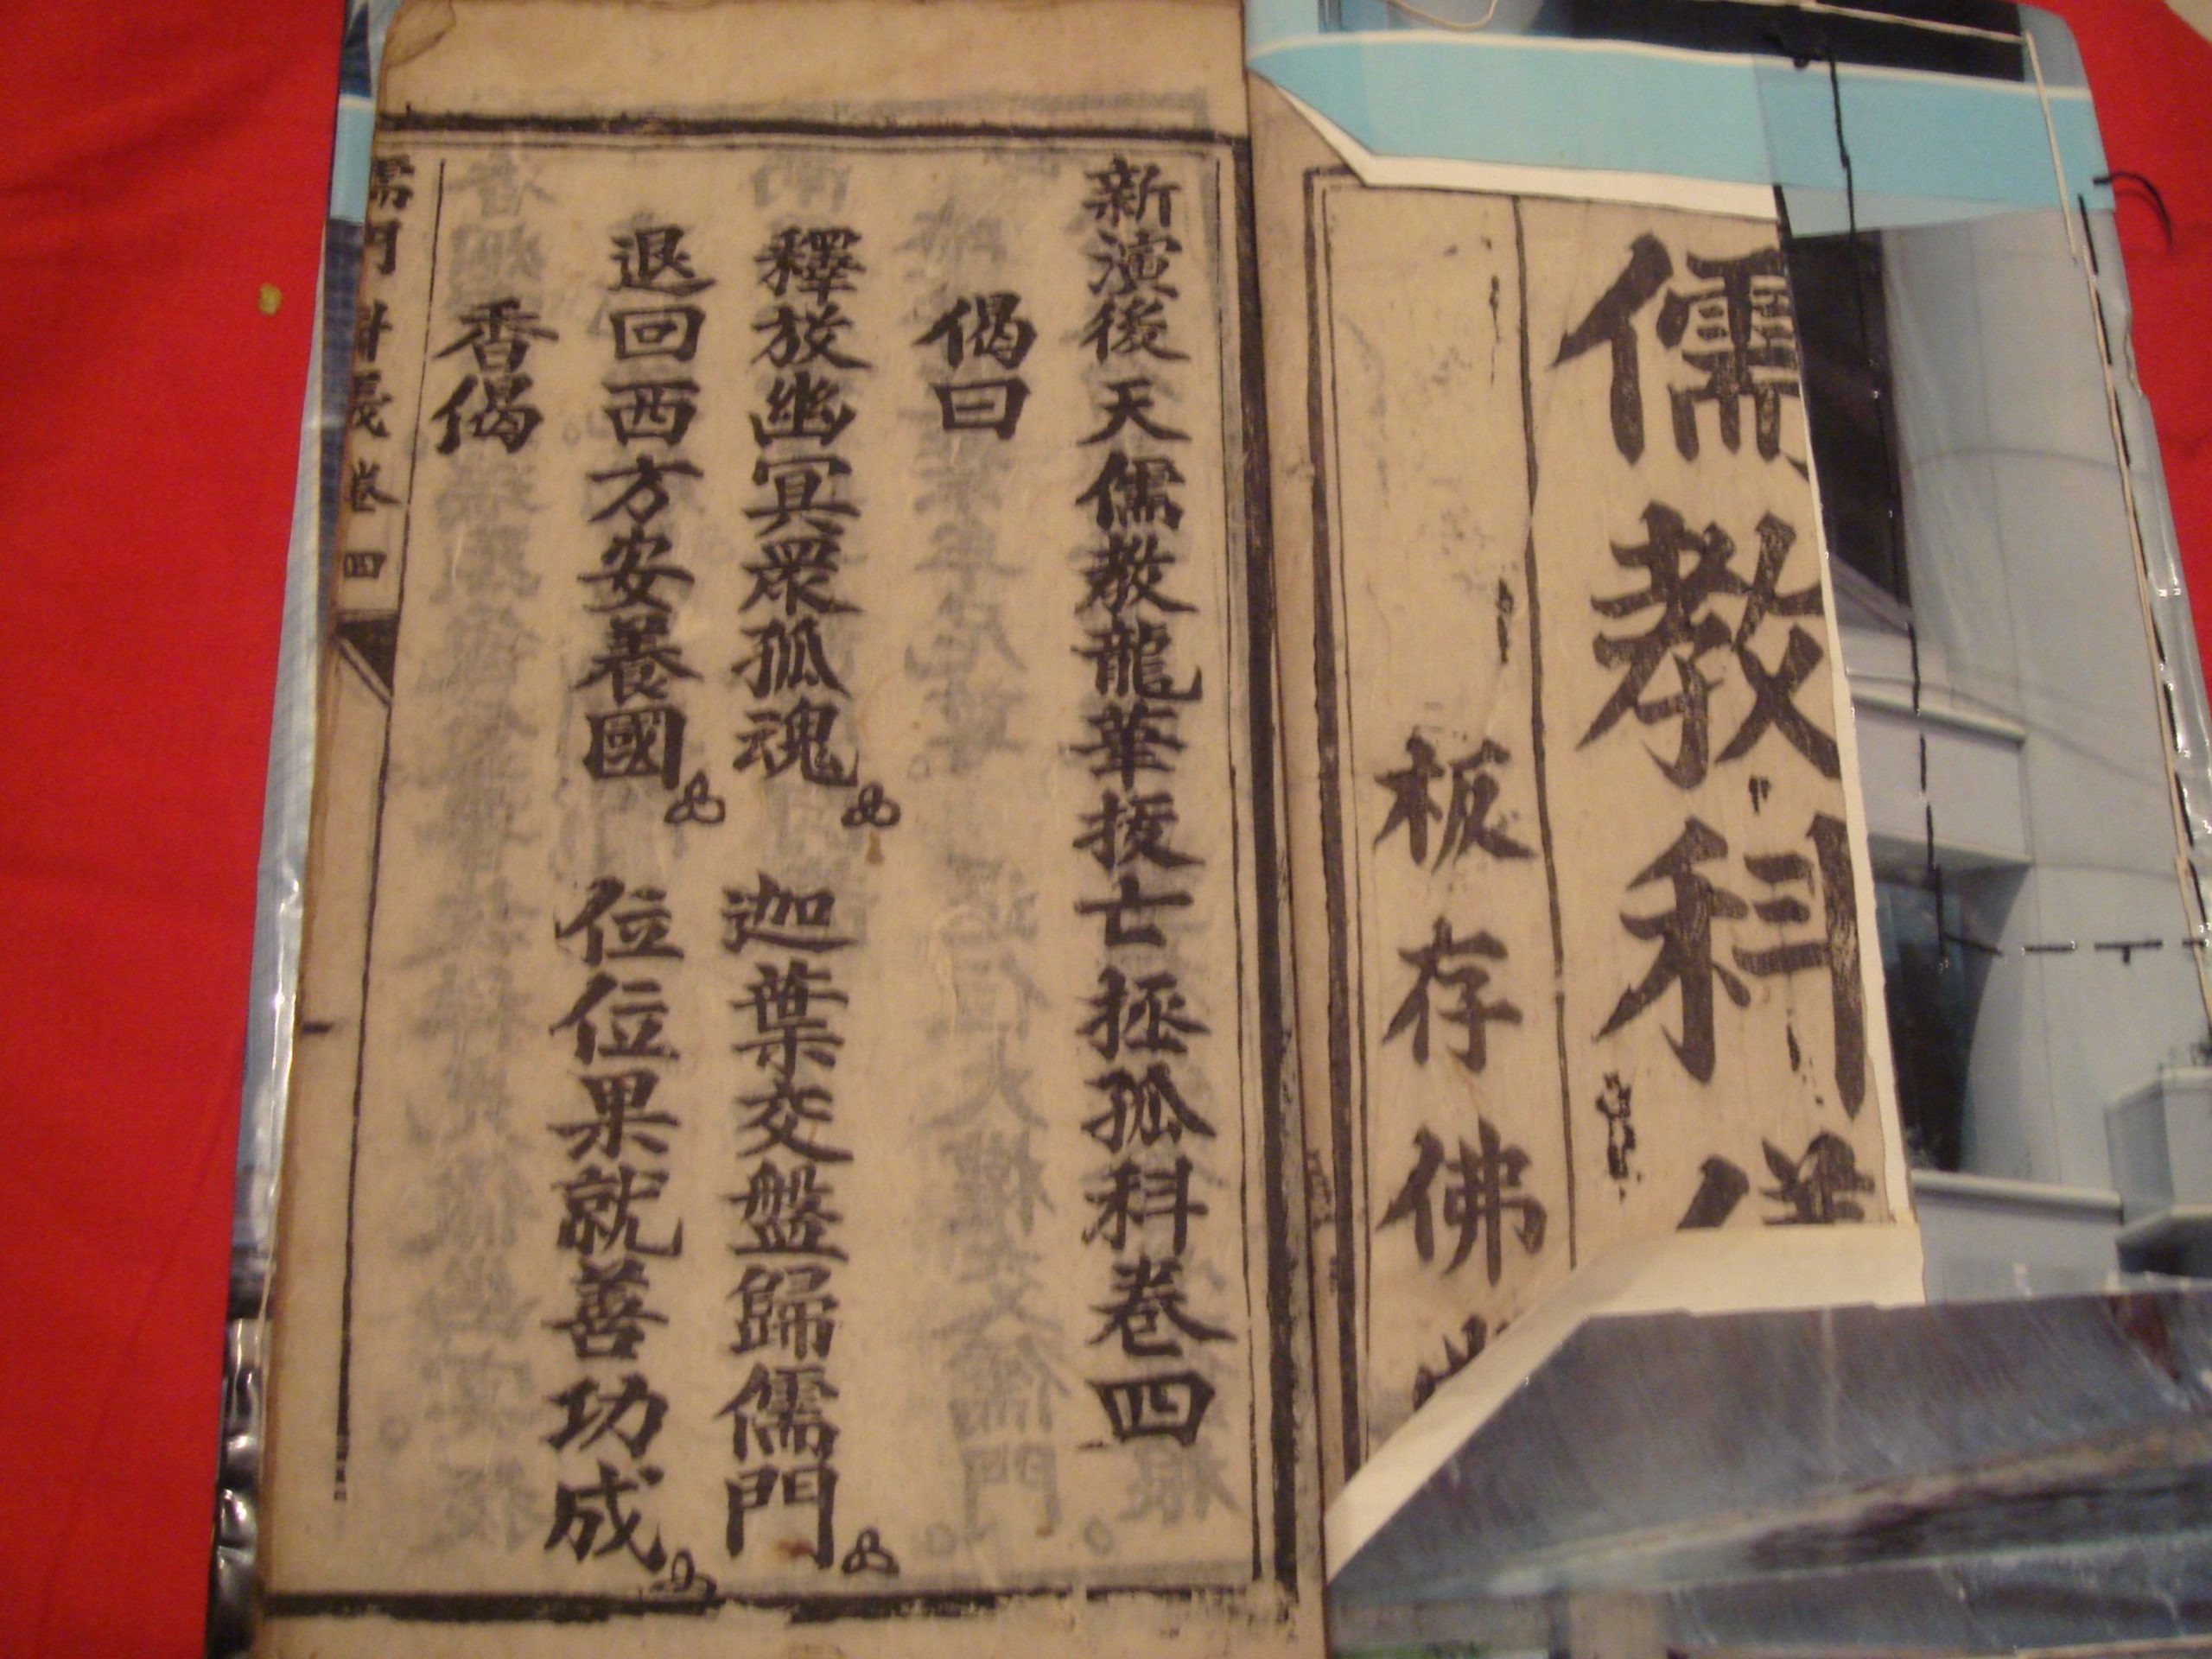 儒教科儀
板存佛
新演後天儒教龍華拔亡拯孤科卷四
偈曰
釋放幽冥眾孤魂 迦葉交盤歸儒門
退回西方安養國 位位果就善功成
香偈
儒門科儀卷四